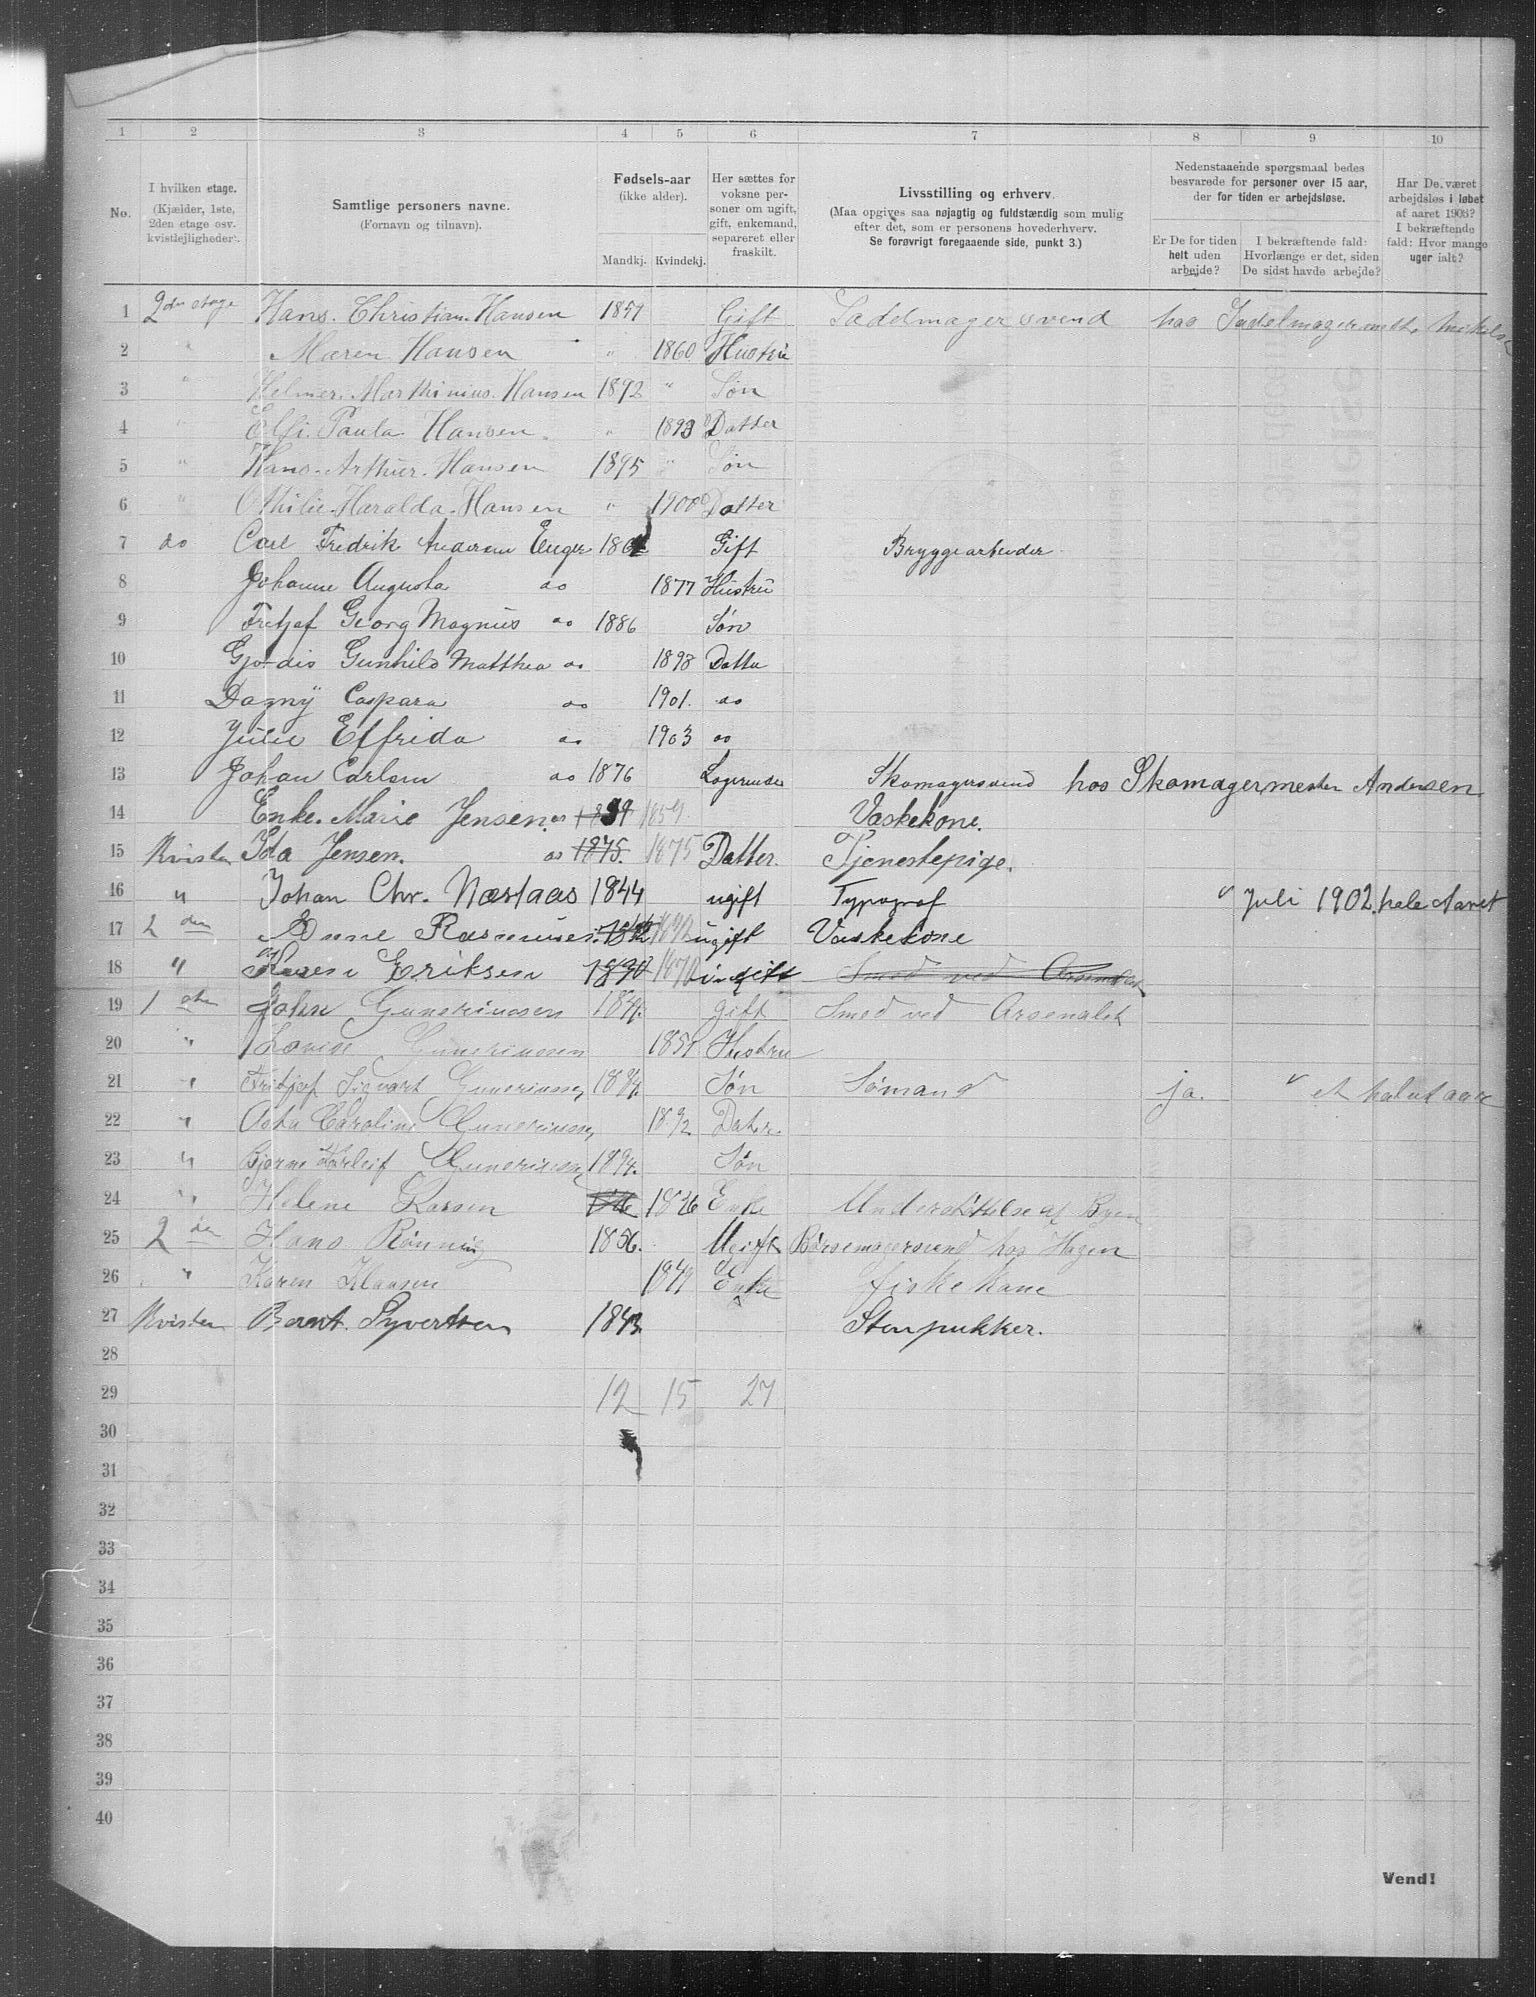 1 2 3 4 5 6 7 8 9 10
No.
I hvilken etage.
(Kjælder, 1ste, 2den etage osv. kvistlejligheder).
Samtlige personers navne.
(Fornavn og tilnavn).
Fødsels-aar
(ikke alder).
Mandkj. Kvindekj.
Her sættes for voksne personer om ugift, gift, enkemand, separeret eller fraskilt.
Livsstilling og erhverv.
(Maa opgives saa nøjagtig og fuldstændig som mulig efter det, som er personens hovederhverv.
Se forøvrigt foregaaende side, punkt 3.)
Nedenstaaende spørgsmaal bedes besvarede for personer over 15 aar, der for tiden er arbejdsløse.
Er De for tiden helt uden arbejde?
I bekræftende fald: Hvorlænge er det, siden De sidst havde arbejde?
Har De været arbejdsløs i løbet af aaret 1903? I bekræftende fald: Hvor mange uger ialt?
1 2den etage Hans. Christian. Hansen 1851 Gift Sadelmagersvend hos Sadelmagermest.
2 " Maren Hansen " 1860 Hustru
3 " Helmer. Marthinius. Hansen 1892 " Søn
4 " Elfi. Paula. Hansen. " 1893 Datter
5 " Hans. Arthur. Hansen 1895 " Søn
6 " Othilie. Haralda. Hansen " 1900 Datter
7 do Carl Fredrik Andersen Enger Gift Bryggearbeider
8 Johanne Augusta do 1877 Hustru
9 Fritjof Georg Magnus do 1886 Søn
10 Gjordis Gunhild Matthea do 1898 Datte
11 Dagny Caspara do 1901. do
12 Julie Elfrida do 1903 do
13 Johan Carlsen do 1876 Logerende Skomagersvend hos Skomagermester Andersen
14 Enke. Marie Jensen. do 1859 1859. Vaskekone.
15 Kvisten Ida Jensen. do 1875. 1875 Datter. Tjenestepige.
16 " Johan Chr. Næstaas 1844 ugift Typograf " Juli 1902. hele Aaret
17 2 den Anne Rasmusen. 1842 ugift Vaskekone
18 " Karen Eriksen 1870 ugift Smed ved Arsenalet
19 1 ste John Gundersen gift Smed ved Arsenalet
20 " Lovise 1851 Hustru
21 " Fritjof Sigvart 1884. Søn Sømand ja. " et halvt aar
22 " Asta Caroline 1892 Dater.
23 " Bjarne Thorleif 1894. Søn
24 " Helene Larsen 1826 Enke Understøttelse af Byen
25 2 den Hans Rønning 1856. Ugift Børsemagersvend hos Hagen
26 " Karen Klausen 1849 Enke fiskekone
27 Kvisten Bernt. Syvertsen 1843. Stenpukker.
28
29 12 15 27
30
31
32
33
34
35
36
37
38
39
40
Vend!